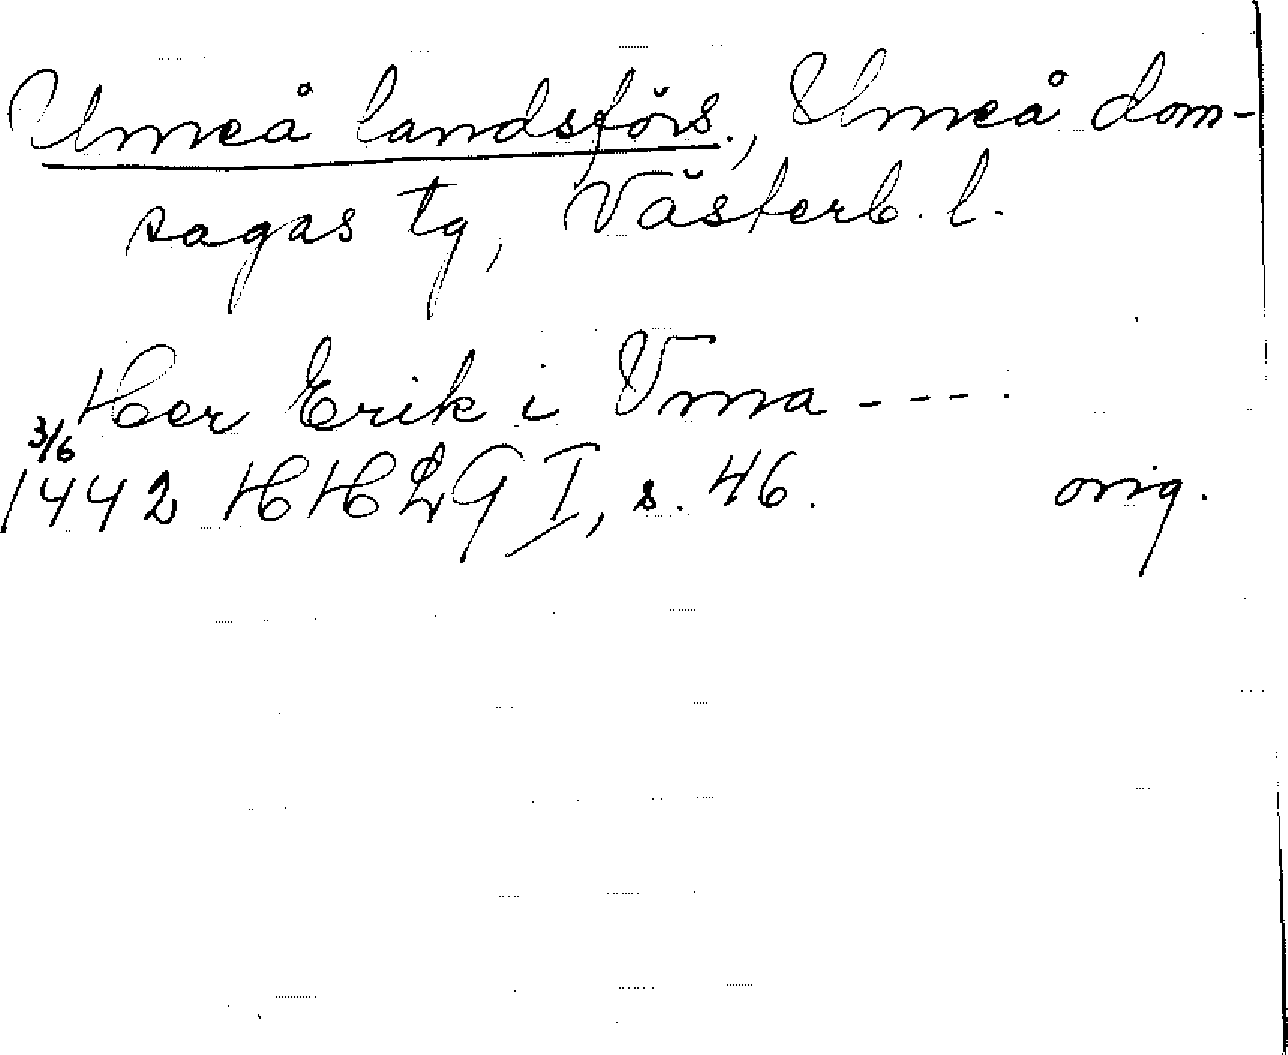 Umeå landsförs., Umeå dom-
sagas tg, Västerb. l.
Her Erik i Vma - - - -
3/6
1442 HHLG I, s. 46. orig.